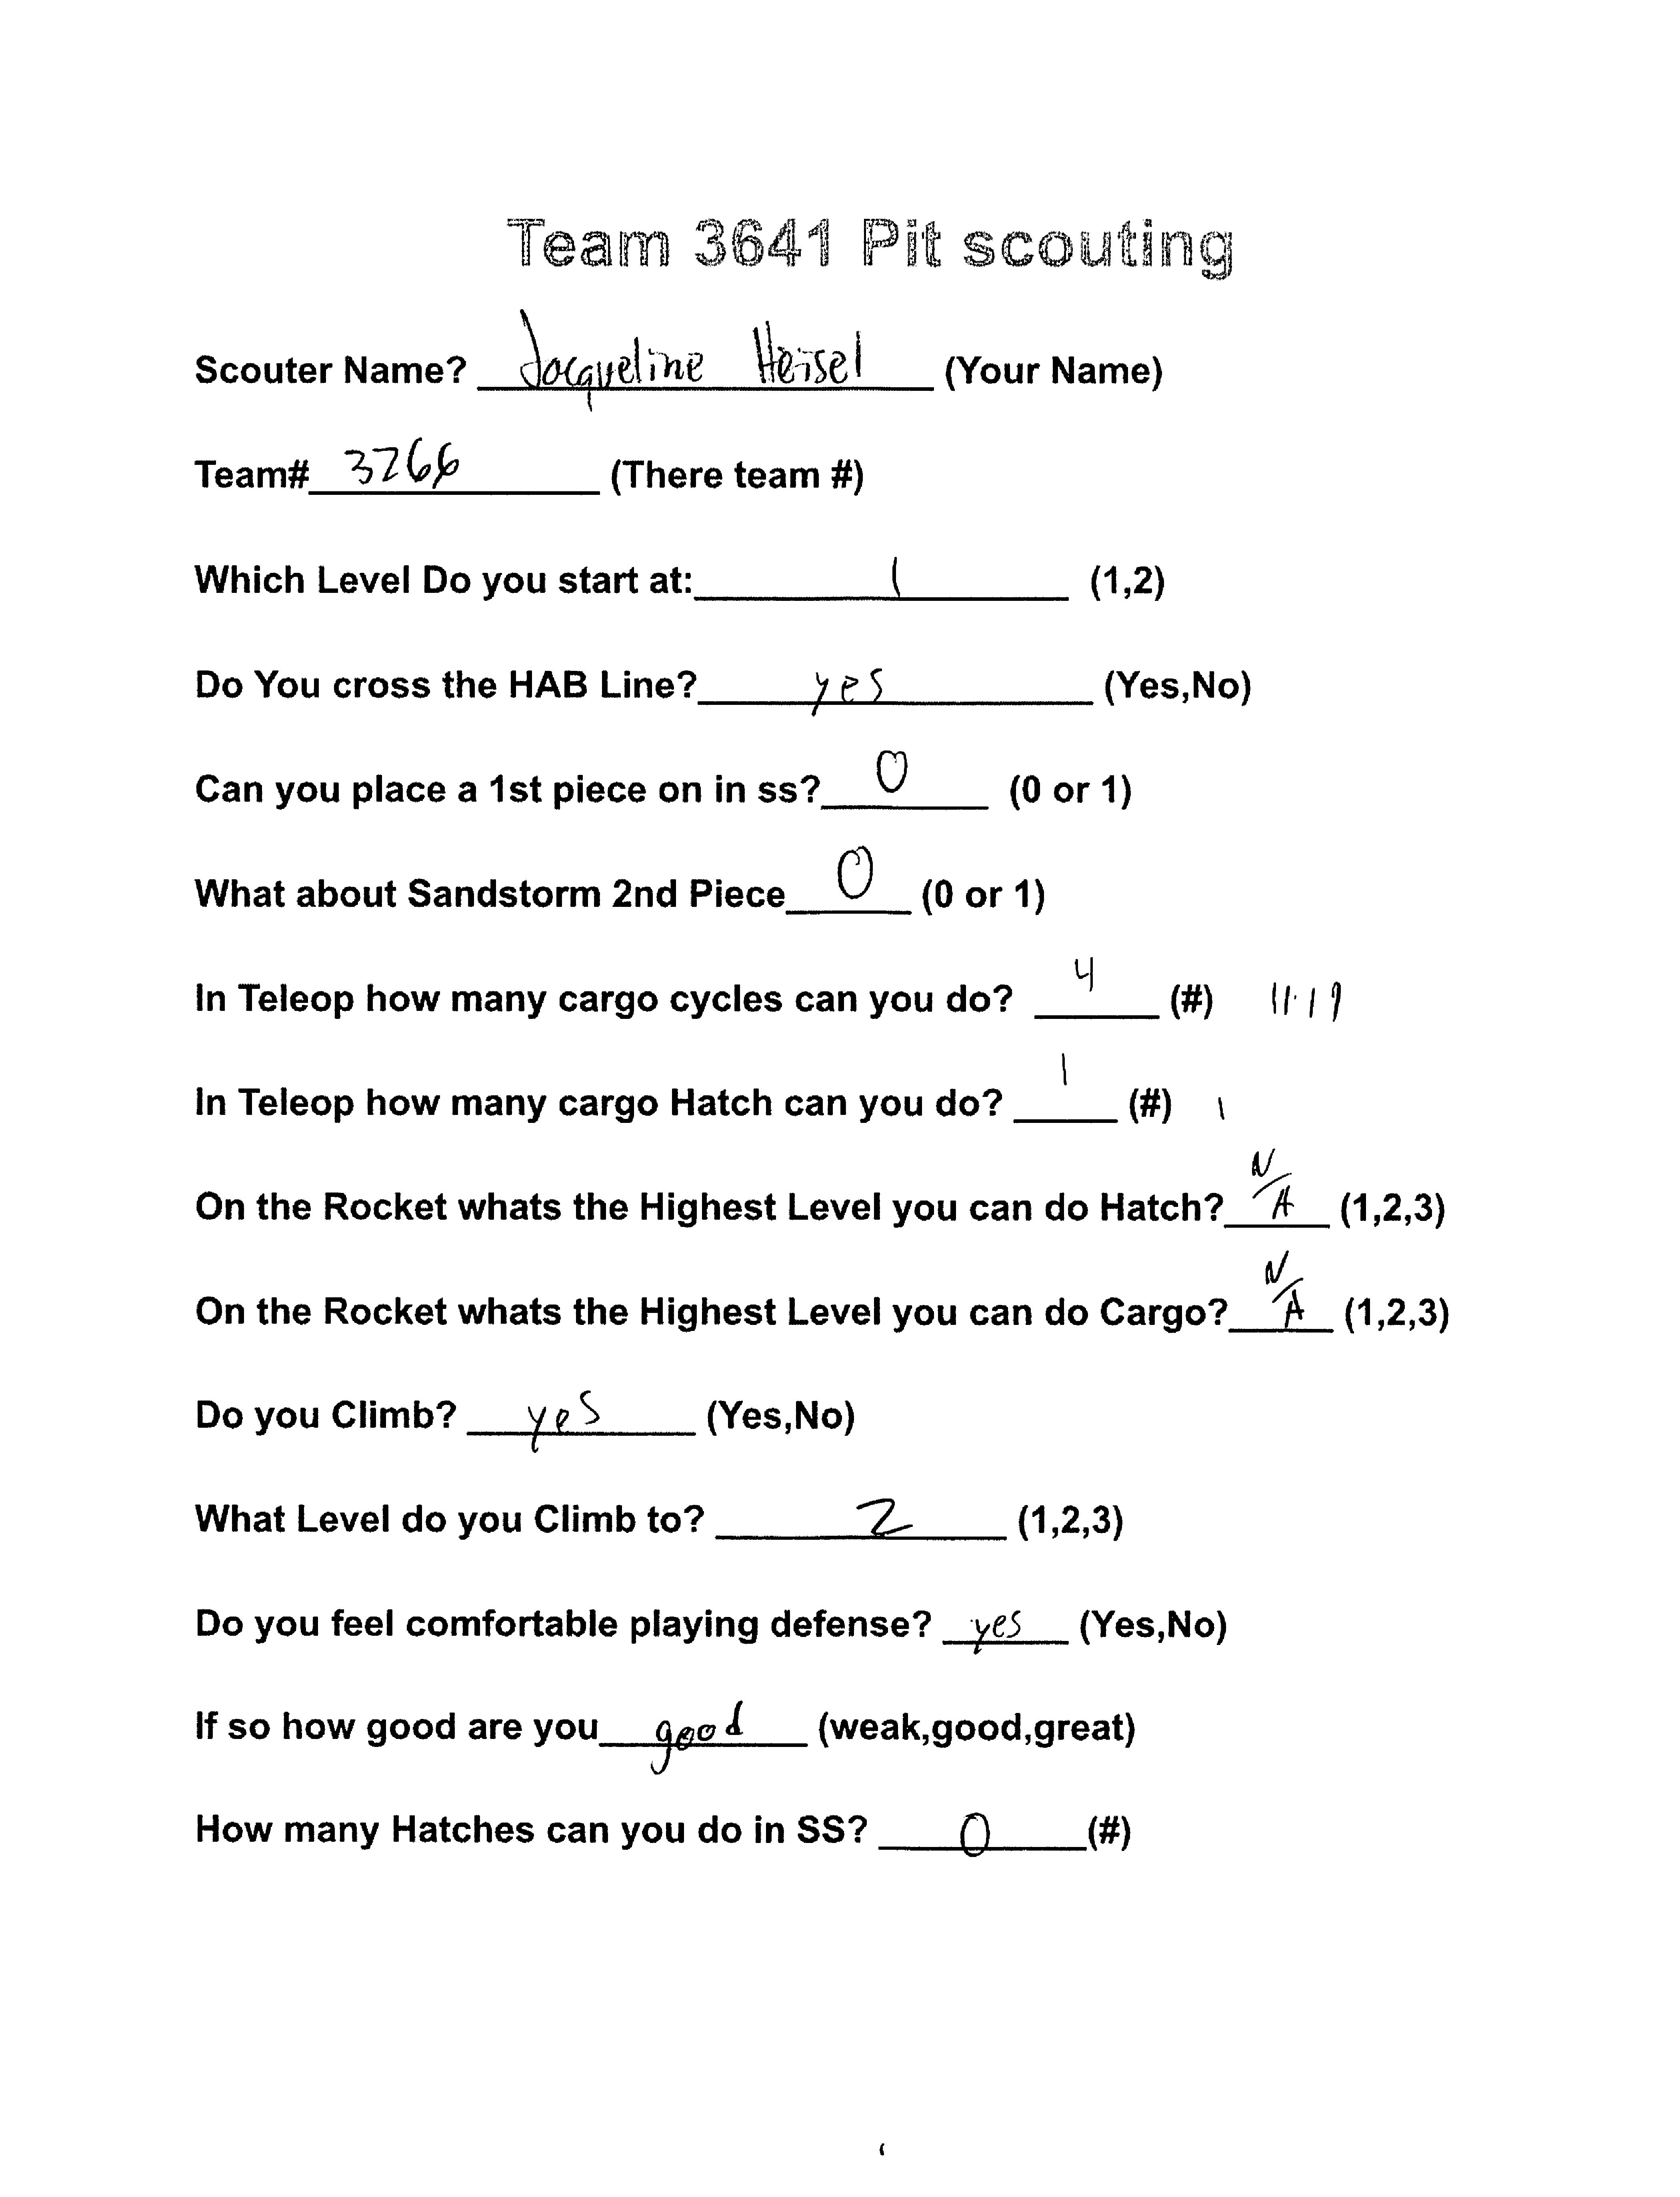 Team 3641 Pit scouting
Scouter Name? Jacqueline Heisel (Your Name)
Team# 3266 (There team #)
Which Level Do you start at: 1 (1,2)
Do You cross the HAB Line? yes (Yes,No)
Can you place a 1st piece on in ss? 0 (0 or 1)
What about Sandstorm 2nd Piece 0 (0 or 1)
In Teleop how many cargo cycles can you do? 4 (#)
In Teleop how many cargo Hatch can you do? 1 (#) 1
On the Rocket whats the Highest Level you can do Hatch? N/A (1,2,3)
On the Rocket whats the Highest Level you can do Cargo? N/A (1,2,3)
Do you Climb? yes (Yes,No)
What Level do you Climb to? 2 (1,2,3)
Do you feel comfortable playing defense? yes (Yes,No)
If so how good are you good (weak,good,great)
How many Hatches can you do in SS? 0 (#)